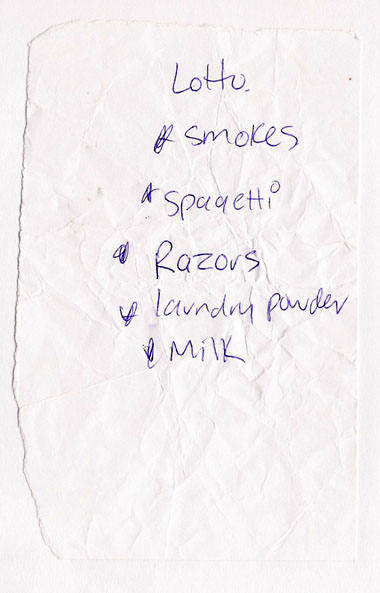 Lotto.
* smokes
* spagetti
* Razors
* laundry powder
* Milk